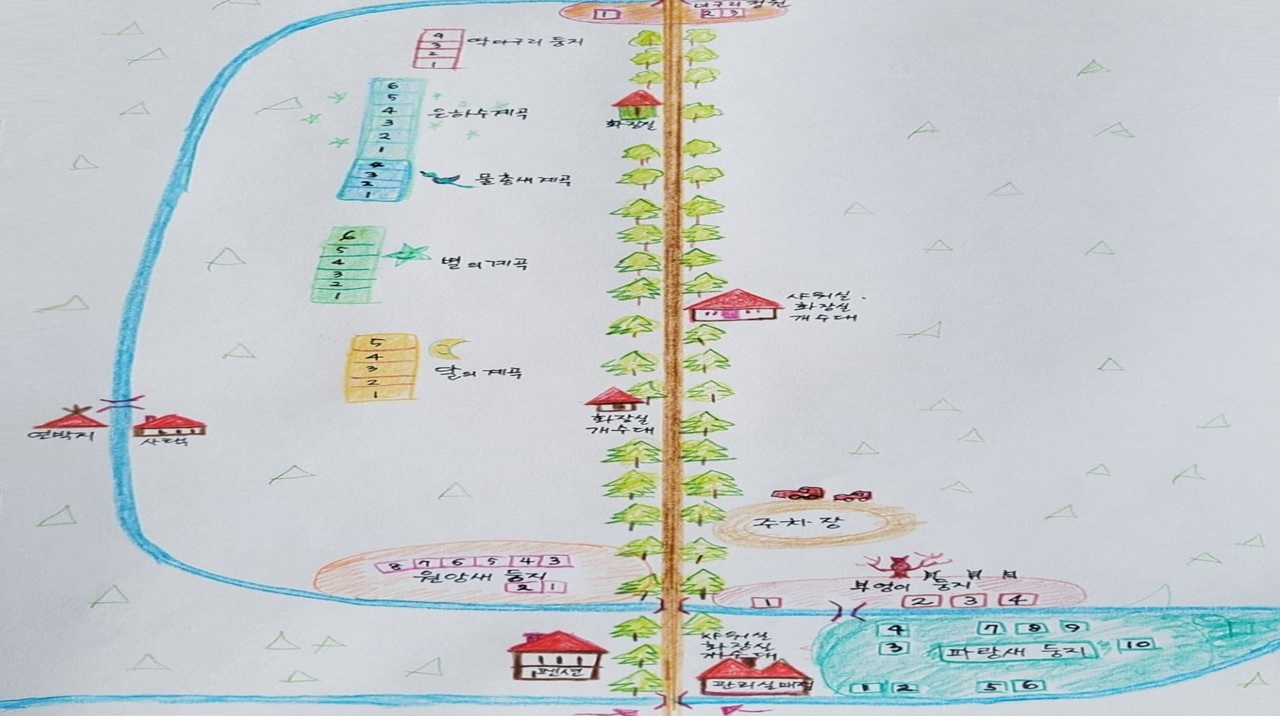 1
2 3
너구리정원
4
3
2
1
딱다구리 둥지
6
5
4
3
2
1
은하수계곡
화장실
4
3
2
1
물총새계곡
6
5
4
3
2
1
별의계곡
샤워실.
화장실
개수대
5
4
3
2
1
달의 계곡
화장실
개수대
연박지
사택
주차장
8 7 6 5 4 3
원앙새 둥지
2 1
부엉이 둥지
1
2 3 4
샤워실
화장실
개수대
펜션
관리실매점
4
7 8 9
3
파랑새 둥지
10
1 2
5 6